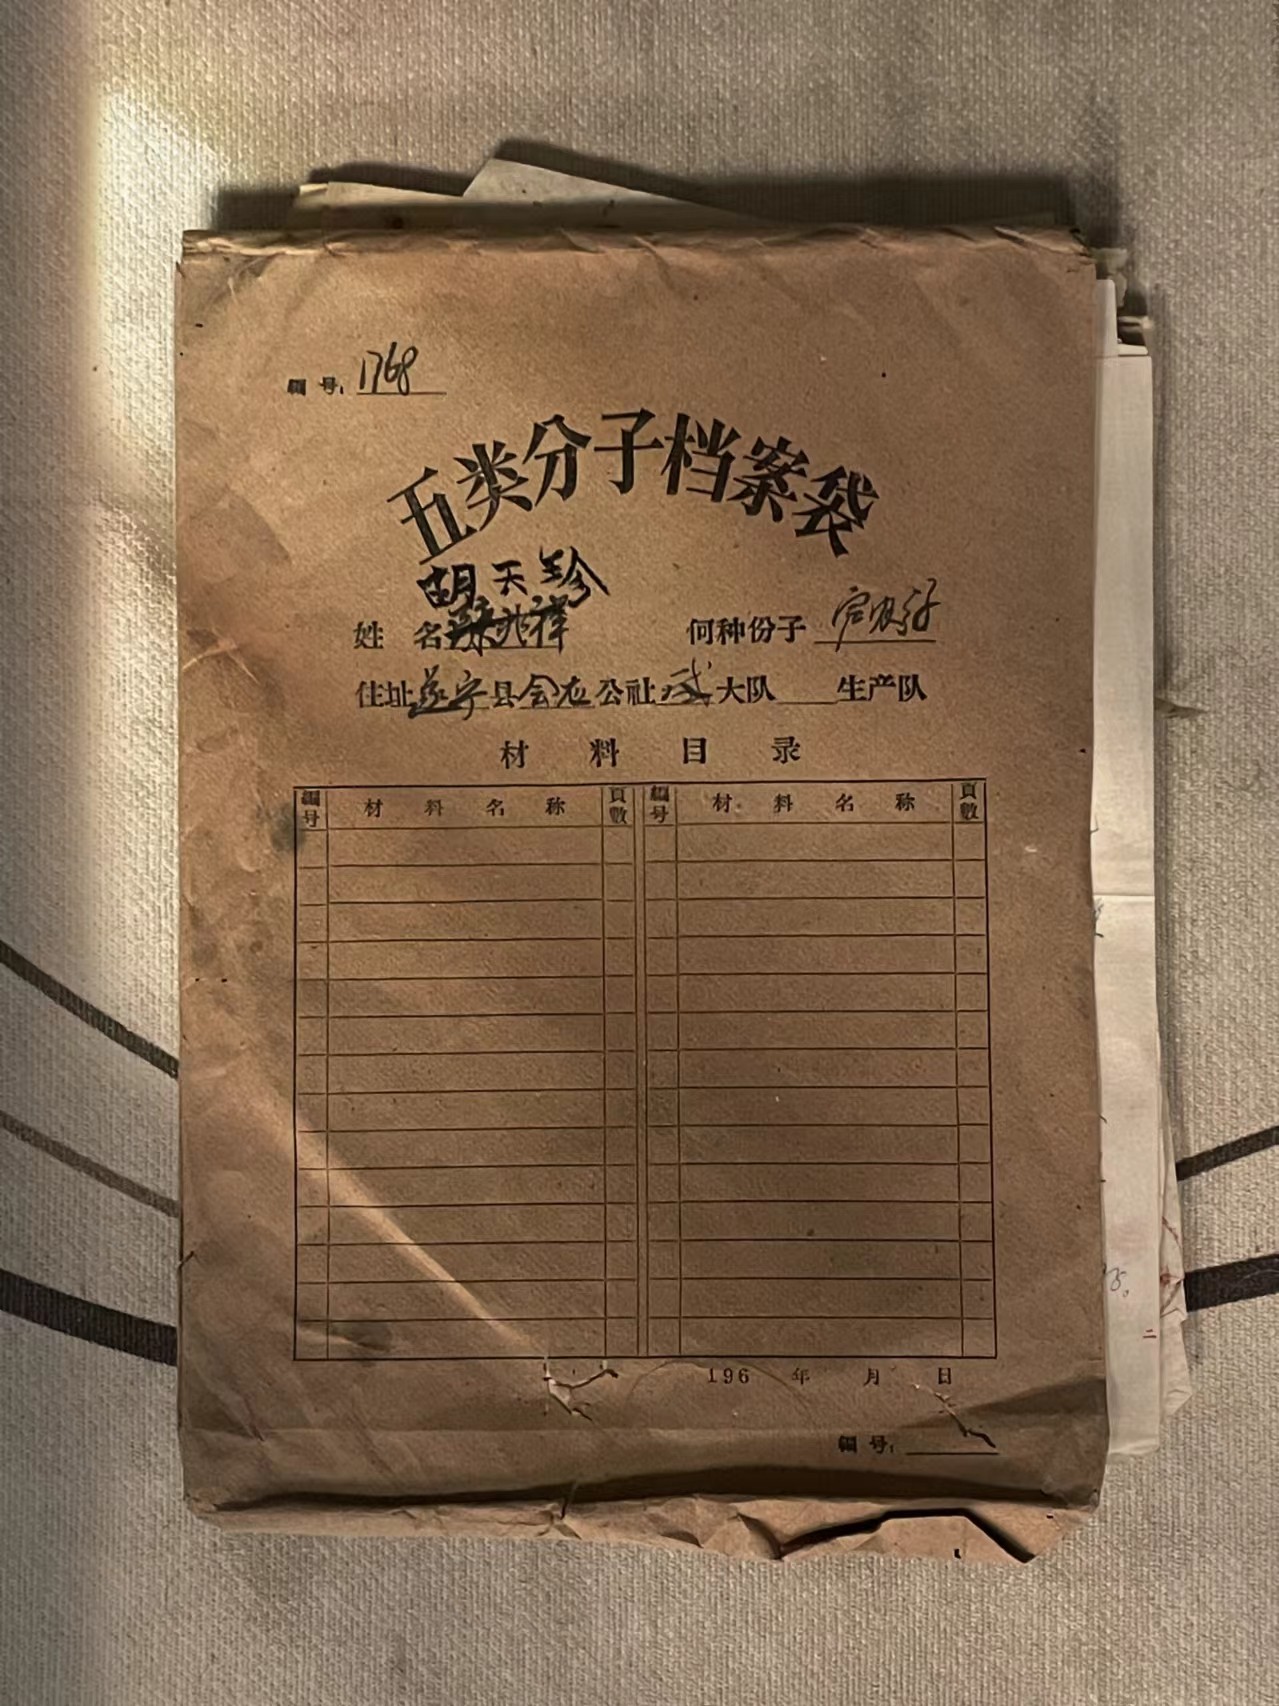 编号: 1768
五类分子档案袋
胡天珍
姓名 兆祥 何种份子 富农分子
住址 遂宁县 会龙 公社 大队 生产队
材料目录
编号 材料名称 頁數 编号 材料名称 頁數
196 年 月 日
编号:
二